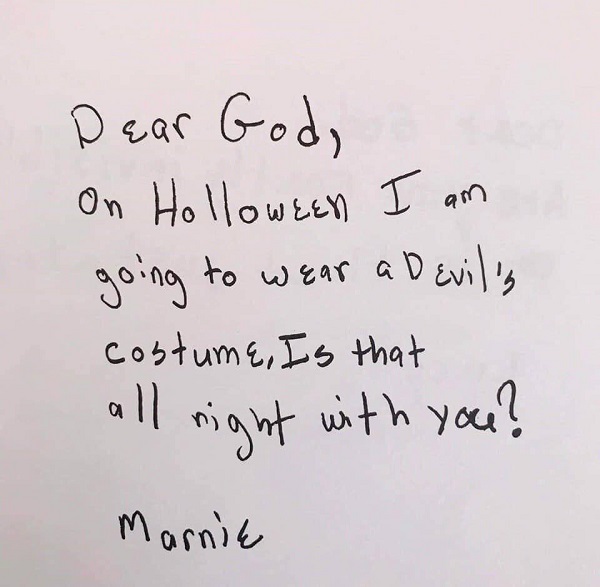 Dear God,
On Holloween I am
going to wear a Devil's
costume, Is that
all right with you?
Marnie